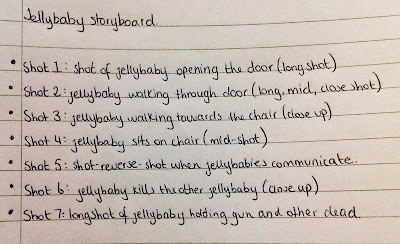 Jellybaby storyboard
• Shot 1: shot of jellybaby opening the door (longshot)
• Shot 2: jellybaby walking through door (long, mid, close shot)
• Shot 3: jellybaby walking towards the chair (close up)
• Shot 4: jellybaby sits on chair (mid-shot)
• Shot 5: shot-reverse-shot when jellybabies communicate.
• Shot 6: jellybaby kills the other jellybaby (close up)
• Shot 7: longshot of jellybaby holding gun and other dead.